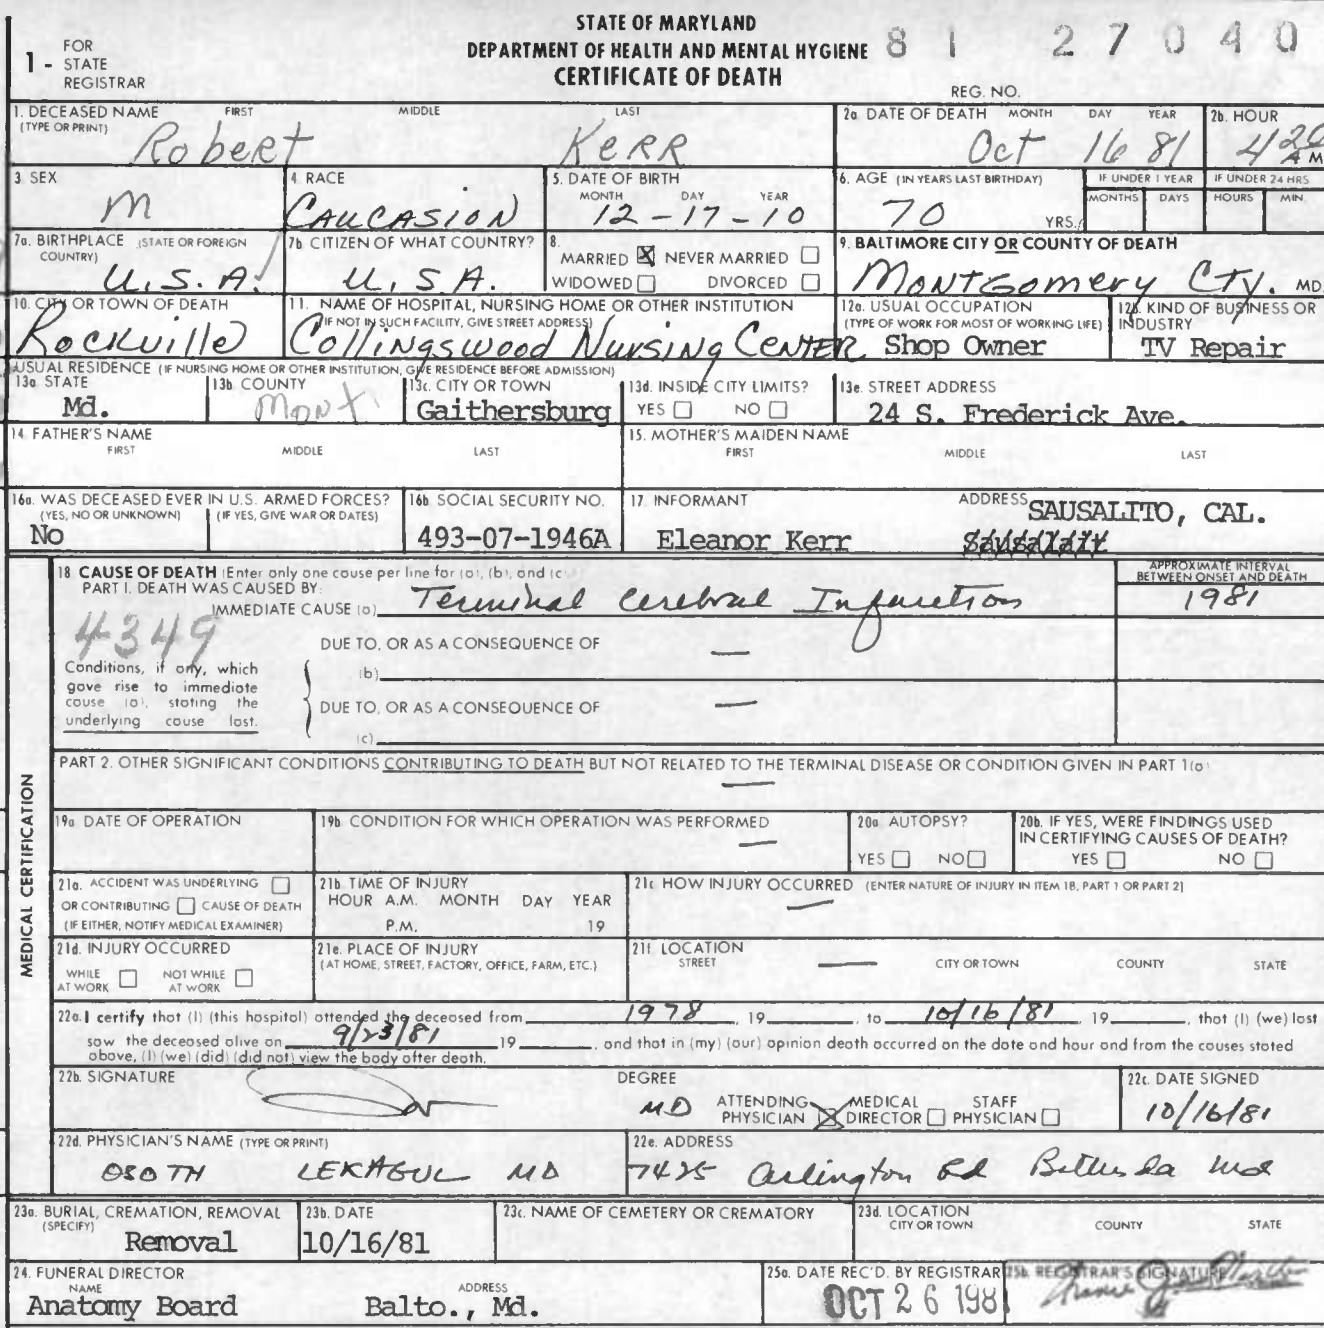 STATE OF MARYLAND
DEPARTMENT OF HEALTH AND MENTAL HYGIENE
CERTIFICATE OF DEATH
81 27040
REG. NO.
1 - FOR STATE REGISTRAR
1. DECEASED NAME (TYPE OR PRINT) FIRST MIDDLE LAST
Robert Kerr
2a DATE OF DEATH MONTH DAY YEAR
Oct 16 81
2b. HOUR
4 20 A M
3. SEX
M
4. RACE
CAUCASION
5. DATE OF BIRTH MONTH DAY YEAR
12-17-10
6. AGE (IN YEARS LAST BIRTHDAY)
70 YRS.
IF UNDER 1 YEAR MONTHS DAYS
IF UNDER 24 HRS HOURS MIN.
7a. BIRTHPLACE (STATE OR FOREIGN COUNTRY)
U.S.A.
7b CITIZEN OF WHAT COUNTRY?
U.S.A.
8. MARRIED ☒ NEVER MARRIED ☐
WIDOWED ☐ DIVORCED ☐
9. BALTIMORE CITY OR COUNTY OF DEATH
Montgomery CTy. MD.
10. CITY OR TOWN OF DEATH
Rockville
11. NAME OF HOSPITAL, NURSING HOME OR OTHER INSTITUTION
(IF NOT IN SUCH FACILITY, GIVE STREET ADDRESS)
Collingswood Nursing Center
12a. USUAL OCCUPATION
(TYPE OF WORK FOR MOST OF WORKING LIFE)
Shop Owner
12b. KIND OF BUSINESS OR INDUSTRY
TV Repair
USUAL RESIDENCE (IF NURSING HOME OR OTHER INSTITUTION, GIVE RESIDENCE BEFORE ADMISSION)
13a STATE
Md.
13b COUNTY
Mont
13c. CITY OR TOWN
Gaithersburg
13d. INSIDE CITY LIMITS?
YES ☐ NO ☐
13e. STREET ADDRESS
24 S. Frederick Ave.
14. FATHER'S NAME
FIRST MIDDLE LAST
15. MOTHER'S MAIDEN NAME
FIRST MIDDLE LAST
16a. WAS DECEASED EVER IN U.S. ARMED FORCES?
(YES, NO OR UNKNOWN) (IF YES, GIVE WAR OR DATES)
No
16b SOCIAL SECURITY NO.
493-07-1946A
17. INFORMANT ADDRESS
Eleanor Kerr SAUSALITO, CAL.
18 CAUSE OF DEATH (Enter only one cause per line for (a), (b), and (c)
PART I. DEATH WAS CAUSED BY:
IMMEDIATE CAUSE (a) Terminal Cerebral Infarction
APPROXIMATE INTERVAL BETWEEN ONSET AND DEATH
1981
4349
DUE TO, OR AS A CONSEQUENCE OF —
(b)
Conditions, if any, which gave rise to immediate cause (a), stating the underlying cause last.
DUE TO, OR AS A CONSEQUENCE OF —
(c)
PART 2. OTHER SIGNIFICANT CONDITIONS CONTRIBUTING TO DEATH BUT NOT RELATED TO THE TERMINAL DISEASE OR CONDITION GIVEN IN PART 1(a)
—
MEDICAL CERTIFICATION
19a DATE OF OPERATION
19b CONDITION FOR WHICH OPERATION WAS PERFORMED
—
20a AUTOPSY?
YES ☐ NO ☐
20b. IF YES, WERE FINDINGS USED IN CERTIFYING CAUSES OF DEATH?
YES ☐ NO ☐
21a. ACCIDENT WAS UNDERLYING ☐
OR CONTRIBUTING ☐ CAUSE OF DEATH
(IF EITHER, NOTIFY MEDICAL EXAMINER)
21b TIME OF INJURY
HOUR A.M. MONTH DAY YEAR
P.M. 19
21c HOW INJURY OCCURRED (ENTER NATURE OF INJURY IN ITEM 18, PART 1 OR PART 2)
—
21d. INJURY OCCURRED
WHILE AT WORK ☐ NOT WHILE AT WORK ☐
21e. PLACE OF INJURY
(AT HOME, STREET, FACTORY, OFFICE, FARM, ETC.)
21f LOCATION
STREET — CITY OR TOWN COUNTY STATE
22a. I certify that (I) (this hospital) attended the deceased from 1978, 19 , to 10/16/81, 19 , that (I) (we) last
saw the deceased alive on 9/23/81 19 , and that in (my) (our) opinion death occurred on the date and hour and from the causes stated
above, (I) (we) (did) (did not) view the body after death.
22b. SIGNATURE
DEGREE
MD
ATTENDING PHYSICIAN ☒ MEDICAL DIRECTOR ☐ STAFF PHYSICIAN ☐
22c. DATE SIGNED
10/16/81
22d. PHYSICIAN'S NAME (TYPE OR PRINT)
OSOTH LEKAGUL MD
22e. ADDRESS
7425 Arlington Rd Bethesda Md
23a. BURIAL, CREMATION, REMOVAL (SPECIFY)
Removal
23b. DATE
10/16/81
23c. NAME OF CEMETERY OR CREMATORY
23d. LOCATION
CITY OR TOWN COUNTY STATE
24. FUNERAL DIRECTOR
NAME ADDRESS
Anatomy Board Balto., Md.
25a. DATE REC'D. BY REGISTRAR
OCT 26 1981
25b. REGISTRAR'S SIGNATURE